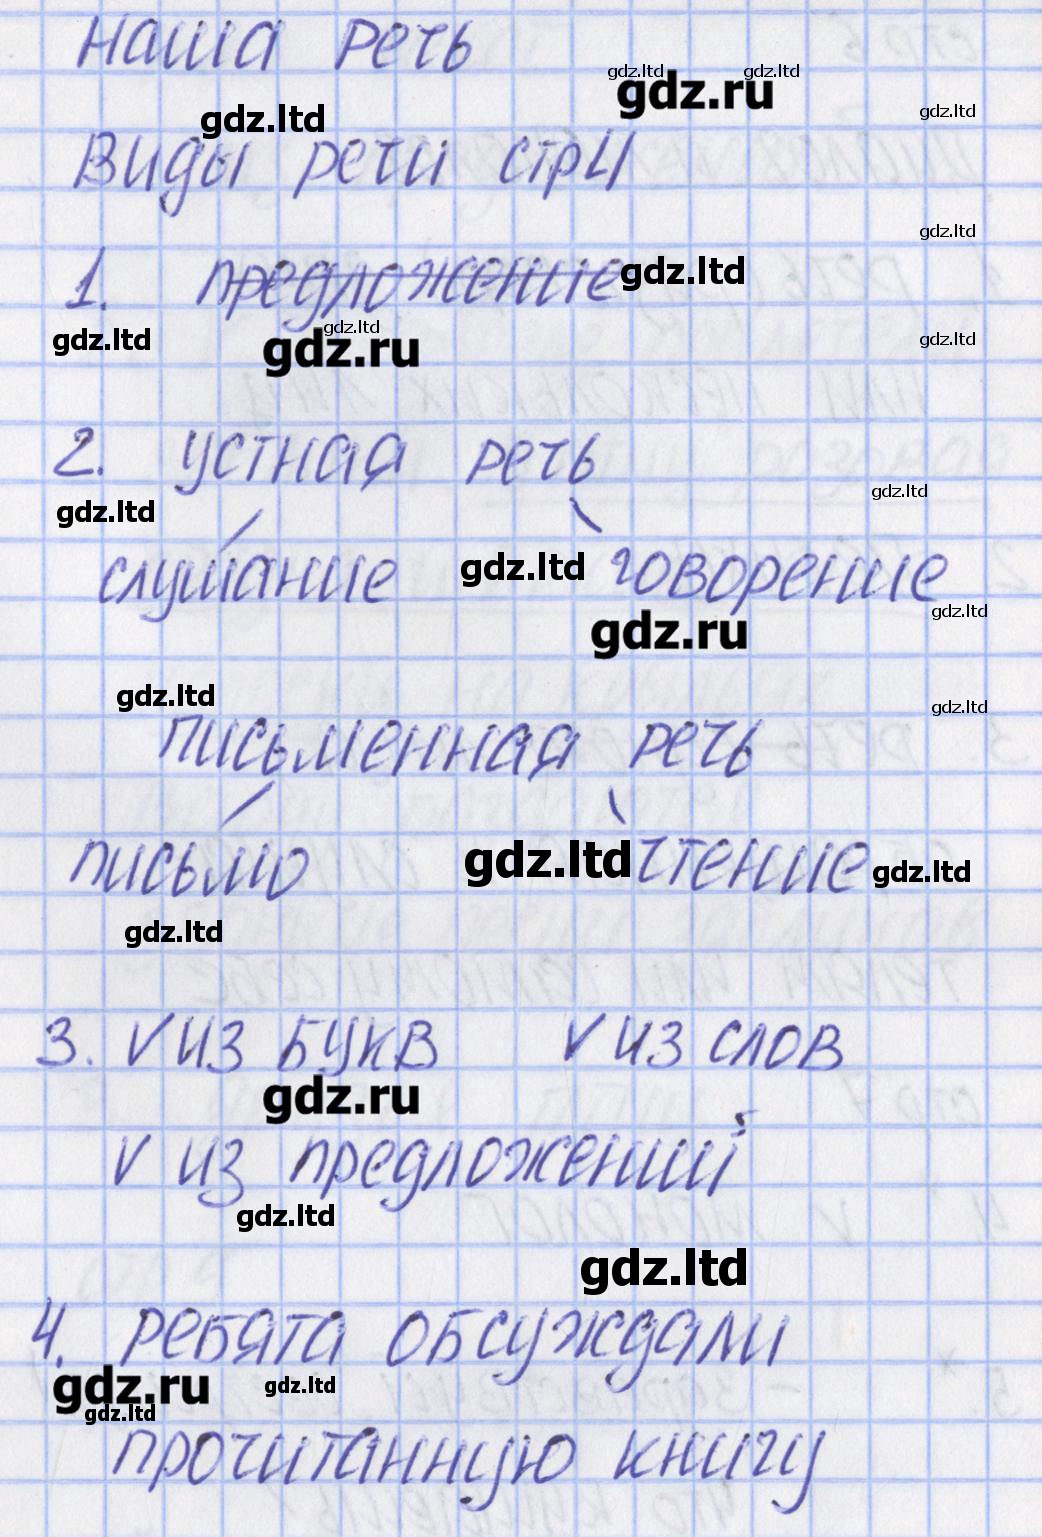 Наша речь
gdz.ltd gdz.ltd
gdz.ru
gdz.ltd gdz.ltd
Виды речи стр 4
gdz.ltd
1. предложение gdz.ltd
gdz.ltd gdz.ltd gdz.ltd
gdz.ru
2. устная речь
gdz.ltd gdz.ltd
слушание gdz.ltd говорение
gdz.ru gdz.ltd
gdz.ltd gdz.ltd
письменная речь
письмо gdz.ltd чтение gdz.ltd
gdz.ltd
3. V из букв V из слов
gdz.ru
V из предложений
gdz.ltd
gdz.ltd
4. ребята обсуждали
gdz.ru gdz.ltd
gdz.ltd
прочитанную книгу